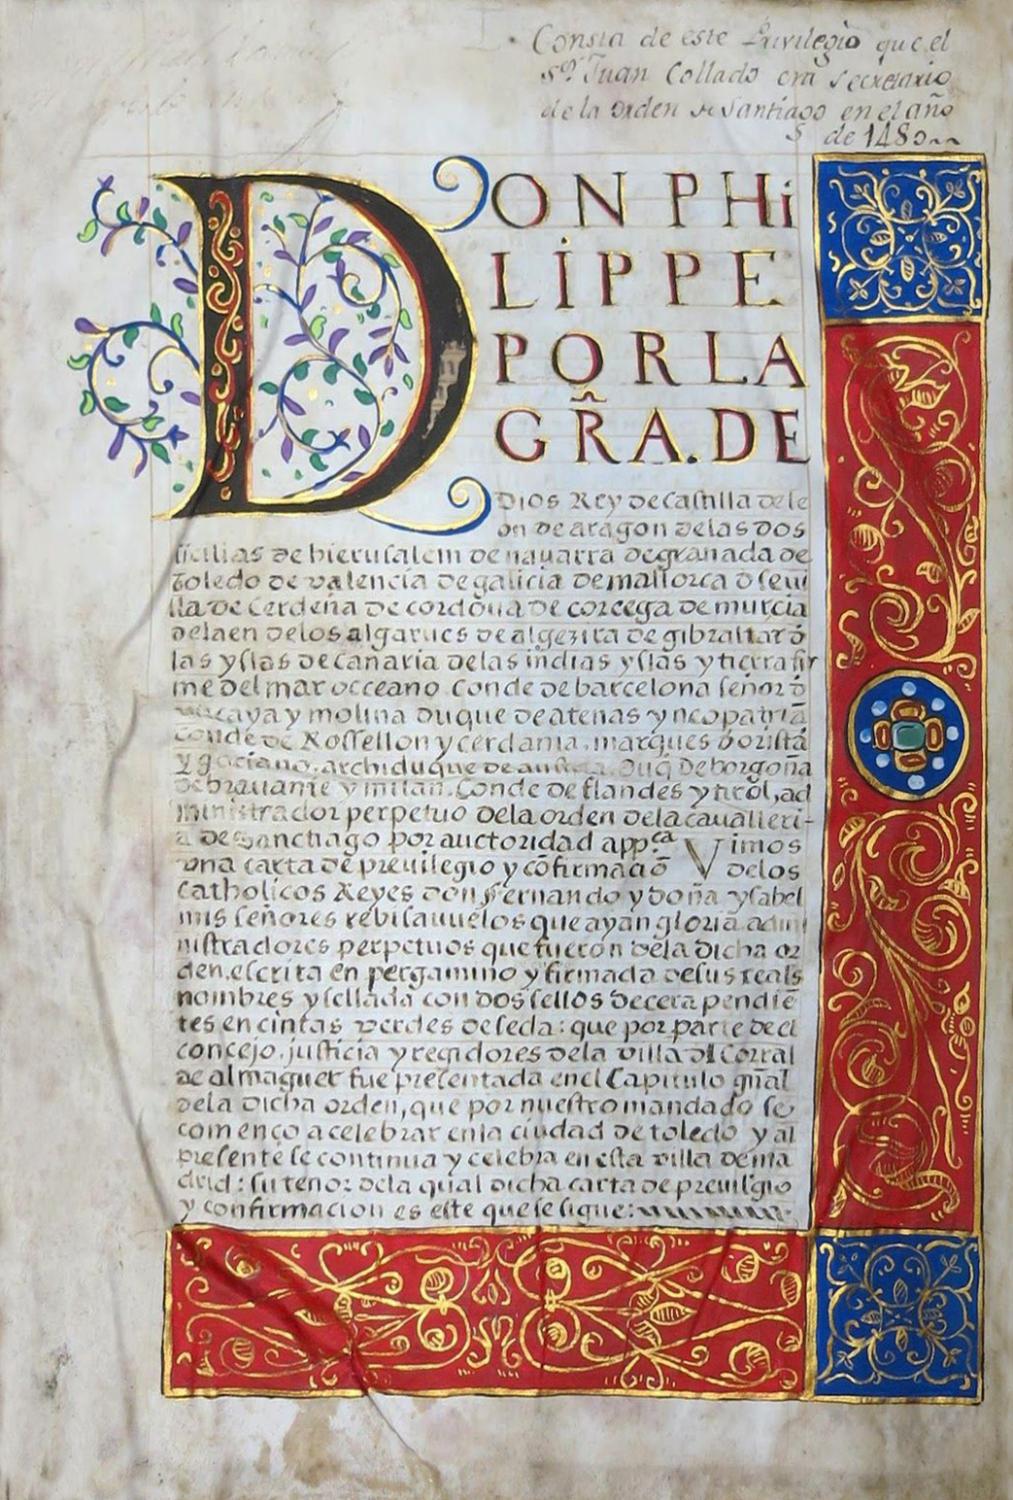 Consta de este Privilegio que el
Sºr Juan Collado era Secretario
de la Orden de Santiago en el año
de 1480
DON PHi
LIPPE
POR LA
GR̃A. DE
Dios Rey de Castilla de le
on de aragon de las dos
sicilias de hierusalem de nauarra de granada de
toledo de valencia de galicia de mallorca đ seui
lla de cerdeña de cordoua de corcega de murcia
de Iaen de los algarues de algezira de gibraltar đ
las yslas de canaria de las indias yslas y tierra fir
me del mar occeano. conde de barcelona señor đ
vizcaya y molina duque de atenas y neopatria
conde de Rossellon y cerdania. marques đ oristã
y gociano. archiduque de austria. Duq̃ de borgoña
de brauante y milan. Conde de flandes y tirol, ad
ministrador perpetuo de la orden de la caualleri-
a de Sanctiago por auctoridad app.ca Vimos
vna carta de preuilegio y cõfirmaciõ delos
catholicos Reyes don fernando y doña ysabel
mis señores rebisauuelos que ayan gloria admi
nistradores perpetuos que fueron dela dicha or
den. escrita en pergamino y firmada de sus reals
nombres y sellada con dos sellos de cera pendiẽ
tes en cintas verdes de seda: que por parte de el
concejo. justicia y regidores dela villa dl Corral
de almaguer fue presentada en el Capitulo gñal
dela dicha orden, que por nuestro mandado se
començo a celebrar en la ciudad de toledo y al
presente se continua y celebra en esta villa de ma
drid: su tenor dela qual dicha carta de preuilegio
y confirmacion es este que se sigue: